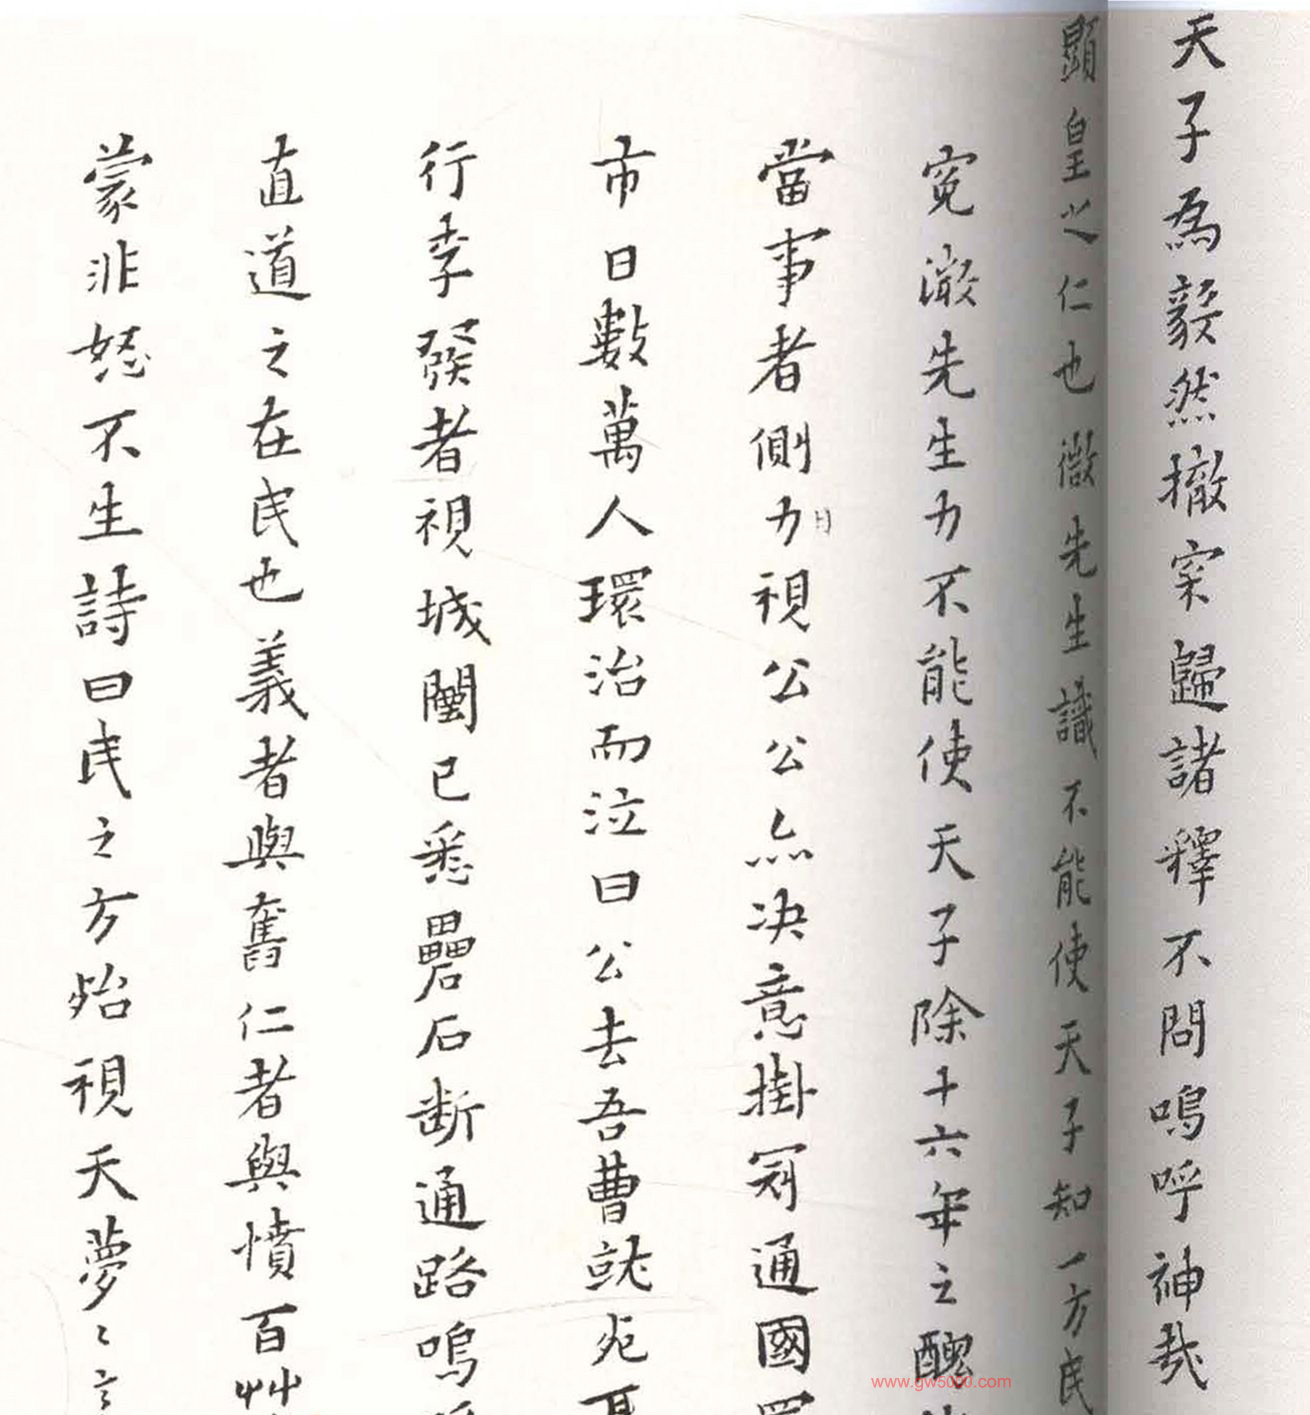 天子為毅然撤寀歸諸釋不問嗚呼神哉
顯皇之仁也微先生識不能使天子知一方民
寃微先生力不能使天子除十六年之醜
當事者側力視公公亦决意掛冠通國罢
日
市日數萬人環治而泣曰公去吾曹就死
行李發者視城闉已悉礨石断通路嗚
直道之在民也義者與奮仁者與憤百艸
蒙非怒不生詩曰民之方殆視天夢〻
www.gw5000.com